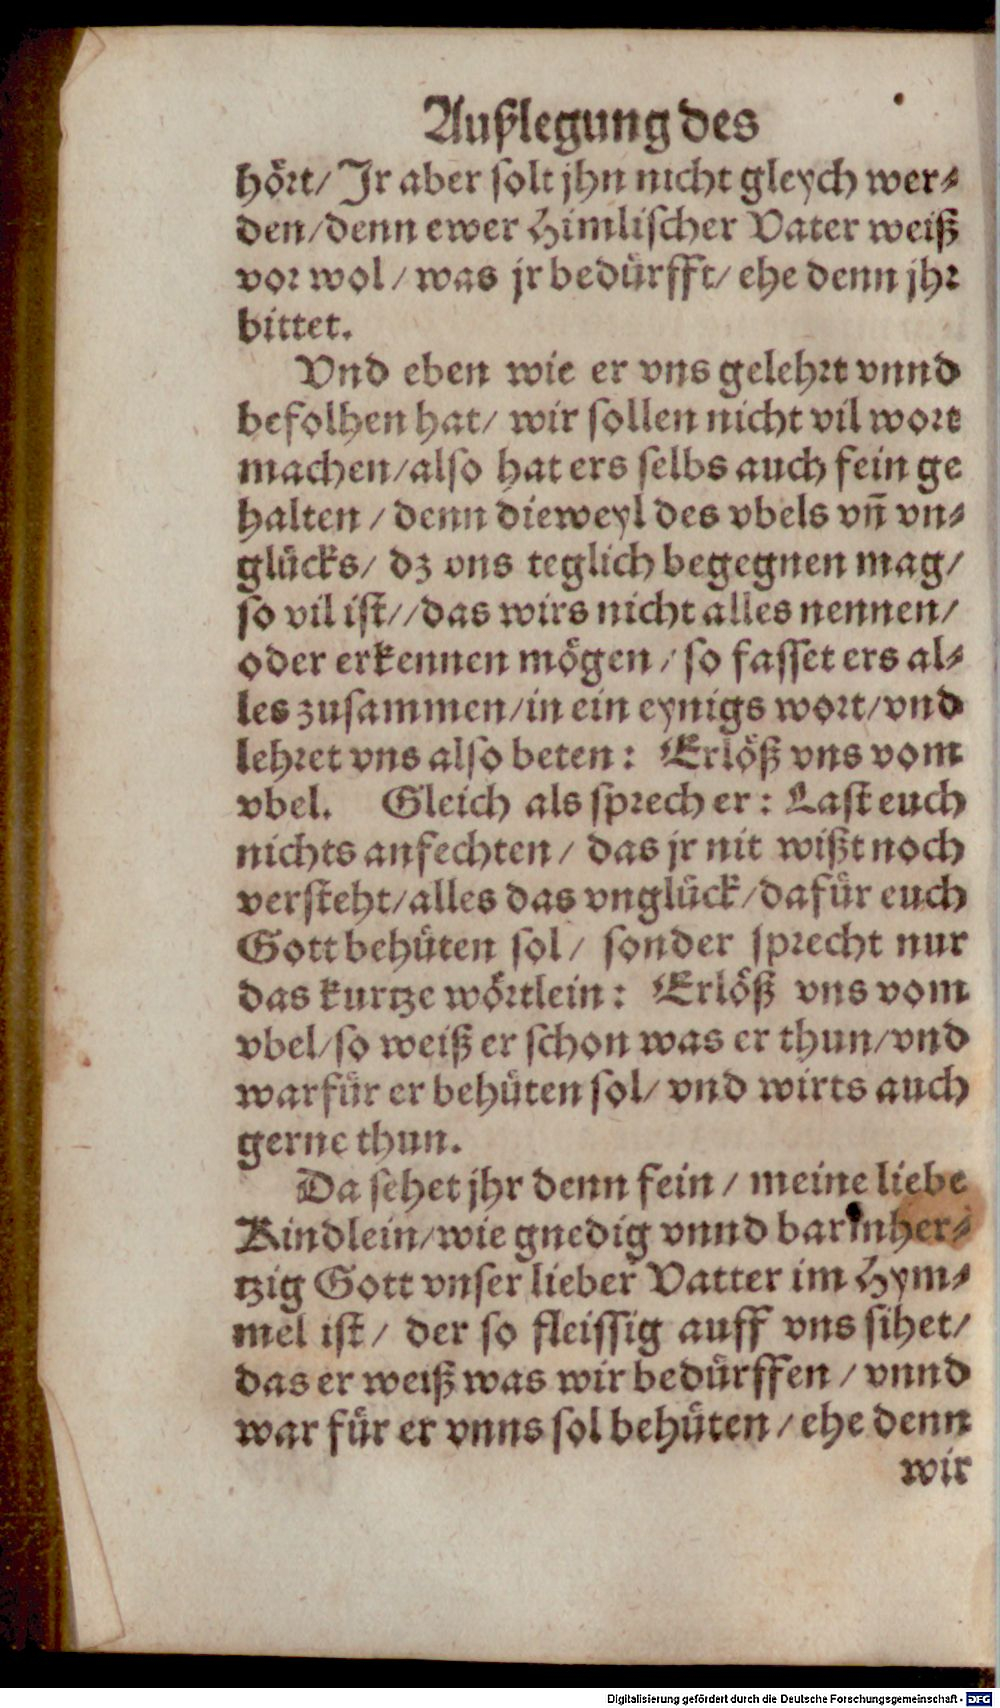 Außlegung des
hört/ Jr aber solt jhn nicht gleych wer-
den/denn ewer Himlischer Vater weiß
vor wol/ was jr bedürfft/ ehe denn jhr
bittet.
Vnd eben wie er vns gelehrt vnnd
befolhen hat/ wir sollen nicht vil wort
machen/also hat ers selbs auch fein ge
halten / denn dieweyl des vbels vñ vn-
glücks/ dz vns teglich begegnen mag/
so vil ist//das wirs nicht alles nennen/
oder erkennen mögen/ so fasset ers al-
les zusammen/in ein eynigs wort/vnd
lehret vns also beten: Erlöß vns vom
vbel. Gleich als sprech er: Last euch
nichts anfechten/ das jr nit wißt noch
versteht/alles das vnglück/dafür euch
Gott behüten sol/ sonder sprecht nur
das kurtze wörtlein: Erlöß vns vom
vbel/so weiß er schon was er thun/vnd
warfür er behüten sol/ vnd wirts auch
gerne thun.
Da sehet jhr denn fein / meine liebe
Kindlein/wie gnedig vnnd barmher-
tzig Gott vnser lieber Vatter im Hym-
mel ist/ der so fleissig auff vns sihet/
das er weiß was wir bedürffen / vnnd
war für er vnns sol behüten / ehe denn
wir
Digitalisierung gefördert durch die Deutsche Forschungsgemeinschaft - DFG